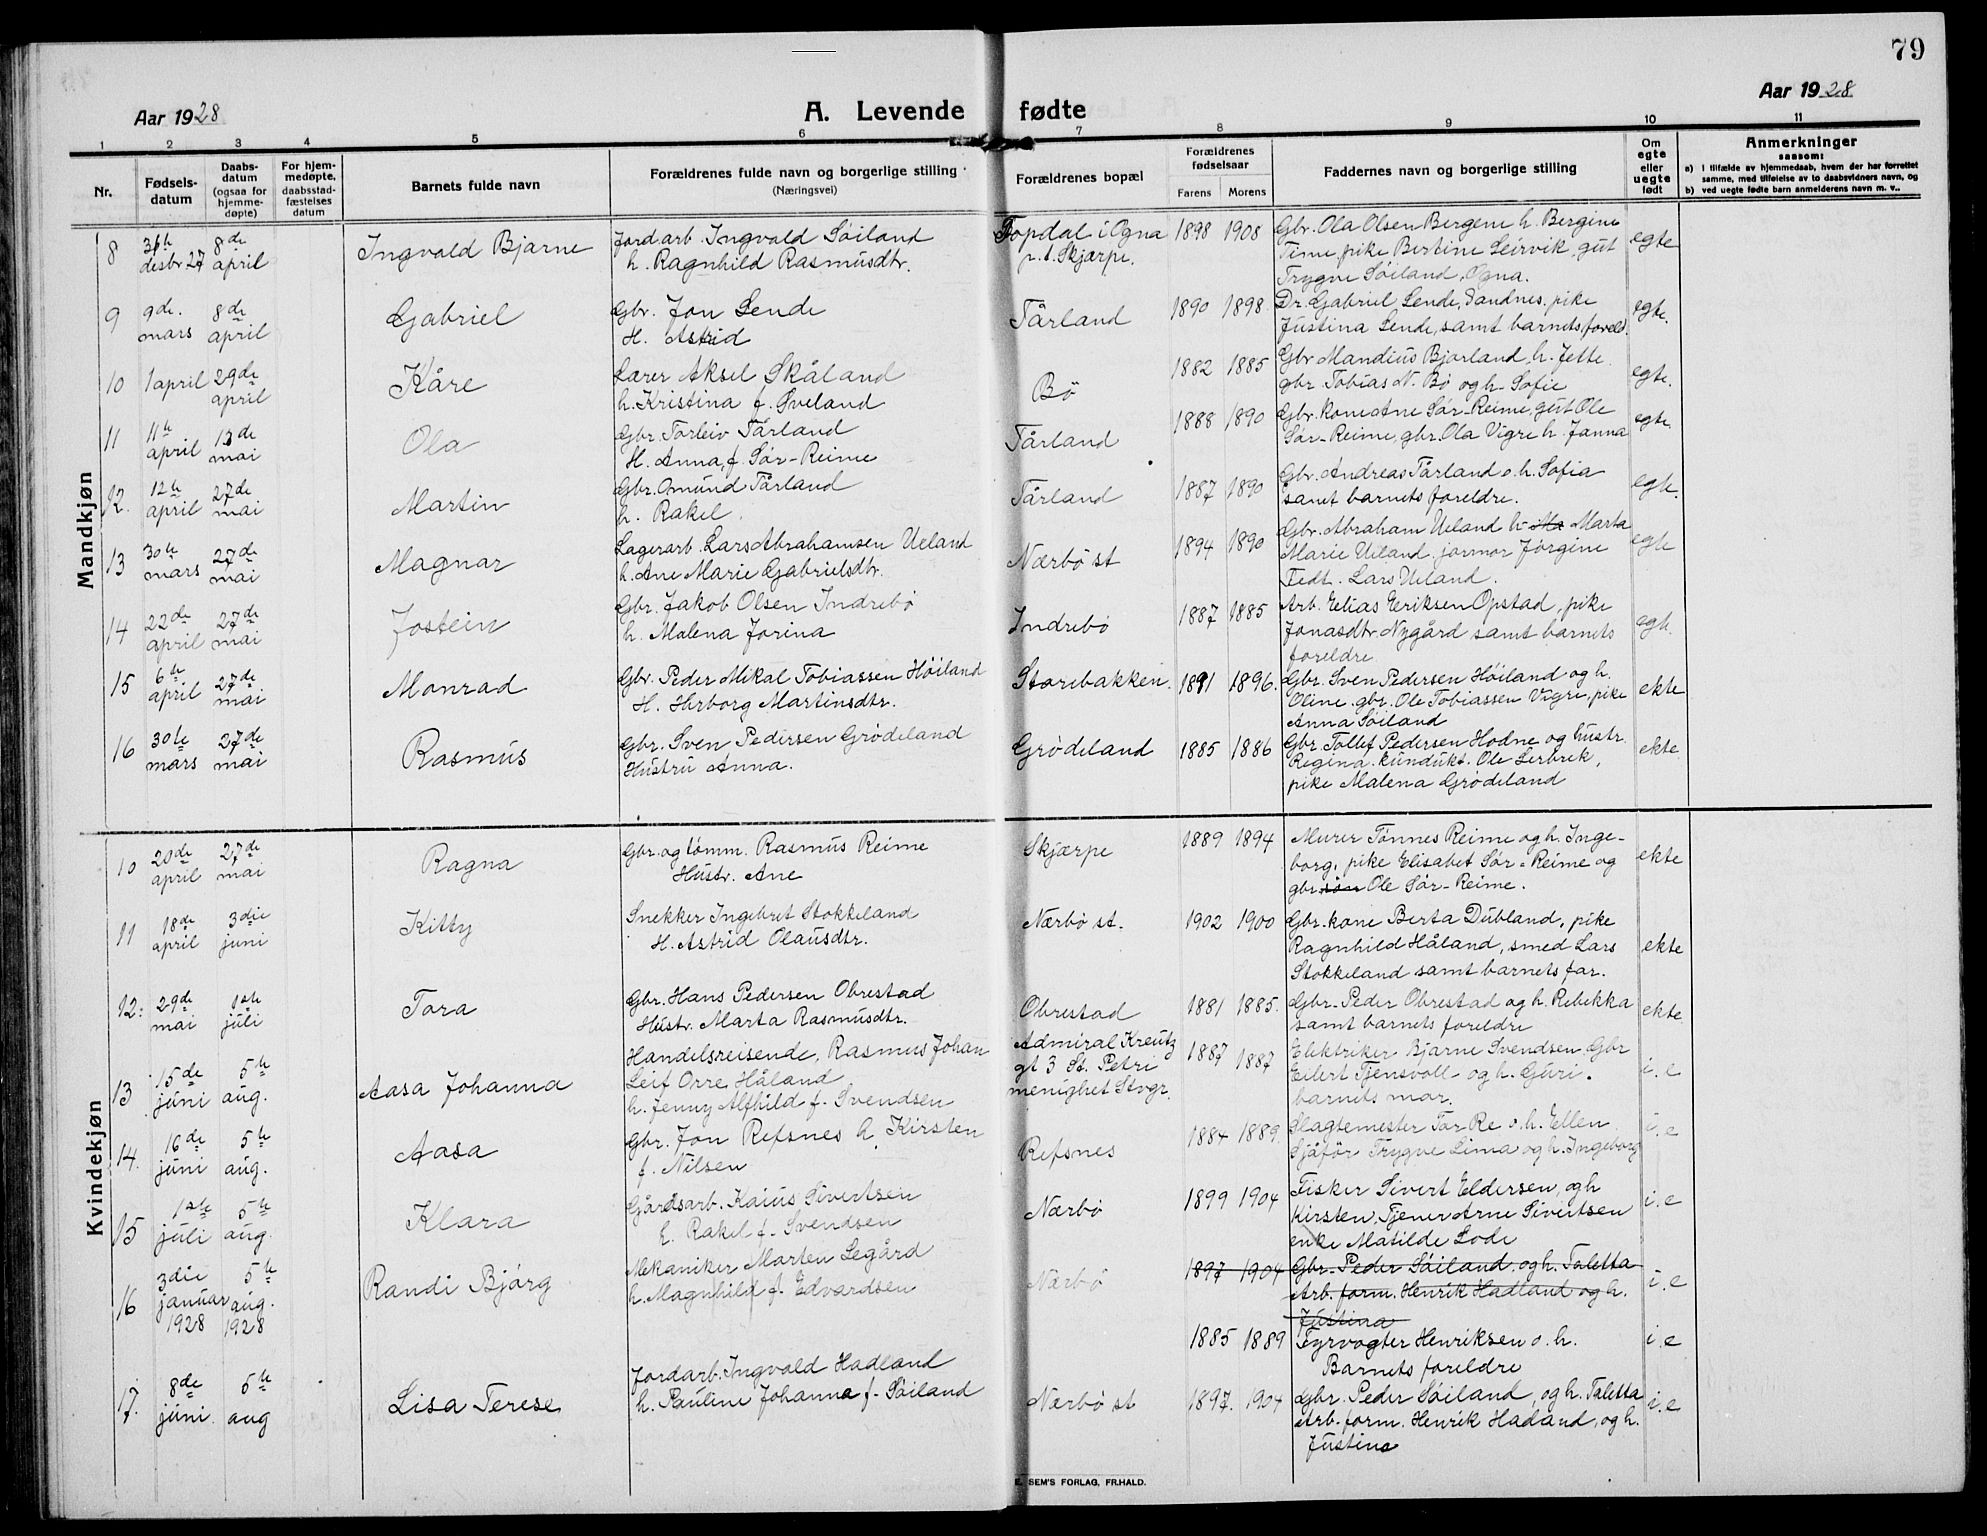 79
Aar 1928
A. Levende fødte
Aar 1928
1 2 3 4 5 6 7 8 9 10 11
Nr.
Fødsels-
datum
Daabs-
datum
(ogsaa for
hjemme-
døpte)
For hjem-
medøpte,
daabsstad-
fæstelses
datum
Barnets fulde navn
Forældrenes fulde navn og borgerlige stilling
(Næringsvei)
Forældrenes bopæl
Forældrenes
fødselsaar
Farens Morens
Faddernes navn og borgerlige stilling
Om
egte
eller
uegte
født
Anmerkninger
saasom:
a) i tilfælde av hjemmedaab, hvem der har forrettet
samme, med tilføielse av to daabsvidners navn, og
b) ved uegte fødte barn anmelderens navn m. v..
Mandkjøn
8
desbr 27
8de
april
Ingvald Bjarne
Jordarb. Ingvald Söiland
h. Ragnhild Rasmusdtr.
Fopdal i Ogna
p.t. Skjærpe.
1898 1908
Gbr. Ola Olsen Bergene h. Bergine
Time, pike Bertine Leirvik, gut
Trygve Söiland, Ogna.
egte
9
9de.
mars
8de
april
Gabriel
Gbr. Jon Lende
H. Astrid
Tårland
1890 1898
Dr. Gabriel Lende, Sandnes, pike
Justina Lende, samt barnets foreld.
egte.
10
1 april
29de
april
Kåre
Lærer Aksel Skåland
h. Kristina f. Sveland
Bö
1882 1885
Gbr Mandius Bjorland, h. Jette.
gbr. Tobias N. Bø og h. Sofie
egte.
11
11te
april
13de
mai
Ola
Gbr. Torleiv Tårland
H. Anna, f. Sör-Reime
Tårland
1888 1890
Gbr. kone Ane Sör-Reime, gut Ole
Sör-Reime, gbr. Ola Vigre h. Janna
egte.
12.
12te
april
27de
mai
Martin
Gbr. Omund Tårland
h. Rakel.
Tårland
1887 1890
Gbr. Andreas Tårland o. h. Sofia
samt barnets foreldre.
egte.
13
30te
mars
27de
mai
Magnar
Lagerarb. Lars Abrahamsen Ueland
h. Ane Marie Gabrielsdtr.
Nærbö st
1894 1890
Gbr. Abraham Ueland h. Ma Marta
Marie Ueland, jormor Jörgine
Tedt. Lars Ueland.
egte
14
22de
april
27de
mai
Jostein
Gbr. Jakob Olsen Indrebö
h. Malena Jorina
Indrebö
1887 1885
Arb. Elias Eriksen Opstad, pike
Jonasdtr. Nygård samt barnets
foreldre
egte.
15
6te
april
27de
mai
Monrad
Gbr. Peder Mikal Tobiassen Höiland
H. Herborg Martinsdtr.
Storebakken.
1891 1896.
Gbr. Sven Pedersen Höiland og h.
Oline. gbr. Ole Tobiassen Vigre, pike
Anna Söiland
ekte
16
30te
mars
27de
mai
Rasmus
Gbr. Sven Pedersen Grödeland
Hustru Anna.
Grödeland
1885 1886
Gbr. Tollef Pedersen Hodne og hustr.
Regina. kundukt. Ole Lerbrek,
pike Malena Grödeland
ekte
Kvindekjøn
10
20de
april
27de
mai
Ragna
Gbr. og tömm. Rasmus Reime
Hustr. Ane
Skjærpe
1889 1894
Murer Tönnes Reime og h. Inge-
borg, pike Elisabet Sör-Reime og
gbr. sön Ole Sör-Reime.
ekte
11
18de
april
3die
juni
Kitty
Snekker Ingebret Stokkeland
H. Astrid Olausdtr.
Nærbö st.
1902 1900
Gbr. kone Berta Dubland, pike
Ragnhild Håland, smed Lars
Stokkeland samt barnets far.
ekte
12:
29de
mai
1ste
juli
Tora
Gbr. Hans Pedersen Obrestad
Hustr. Marta Rasmusdtr.
Obrestad
1881 1885.
Gbr. Peder Obrestad og h. Rebekka
samt barnets foreldre
ekte.
13
15de
juni
5te
aug.
Aasa Johanna
Handelsreisende, Rasmus Johan
Leif Orre Håland
h. Jenny Alfhild f. Svendsen
Admiral Kreutz
gt 3 St. Petri
menighet Stvgr.
1887 1887
Elektriker Bjarne Svendsen Gbr
Eilert Tjensvoll og h. Guri.
barnets mor.
i. e
14.
16de
juni
5te
aug.
Aasa
Gbr. Jon Refsnes h. Kirsten
f. Nilsen
Refsnes
1884 1889.
Slagtemester Tor Re o. h. Ellen.
Sjåför Trygve Lima og h. Ingeborg
i. e
15
1ste
juli
5te
aug.
Klara
Gårdsarb. Kaius Sivertsen
h. Rakel f. Svendsen
Nærbö
1899 1904
Fisker Sivert Eldersen, og h
Kirsten, Tjener Arne Sivertsen
enke Matilde Lode
i. e
16
3die
januar
1928
5te
aug.
1928
Randi Bjørg
Mekaniker Marten Legård
h. Magnhild f. Edvardsen
Nærbö
1897 1904
Gbr. Peder Söiland, og h. Taletta
Arb. form. Henrik Hadland og h.
Justina
i. e
1885 1889
Fyrvogter Henriksen o. h.
Barnets foreldre
i. e
17.
8de
juni.
5te
aug
Lisa Terese
Jordarb. Ingvald Hadland
h. Pauline Johanna f. Söiland
Nærbö st
1897. 1904
Gbr. Peder Söiland, og h. Taletta
Arb. form. Henrik Hadland, og h.
Justine
i. e
E. SEM'S FORLAG, FR.HALD.